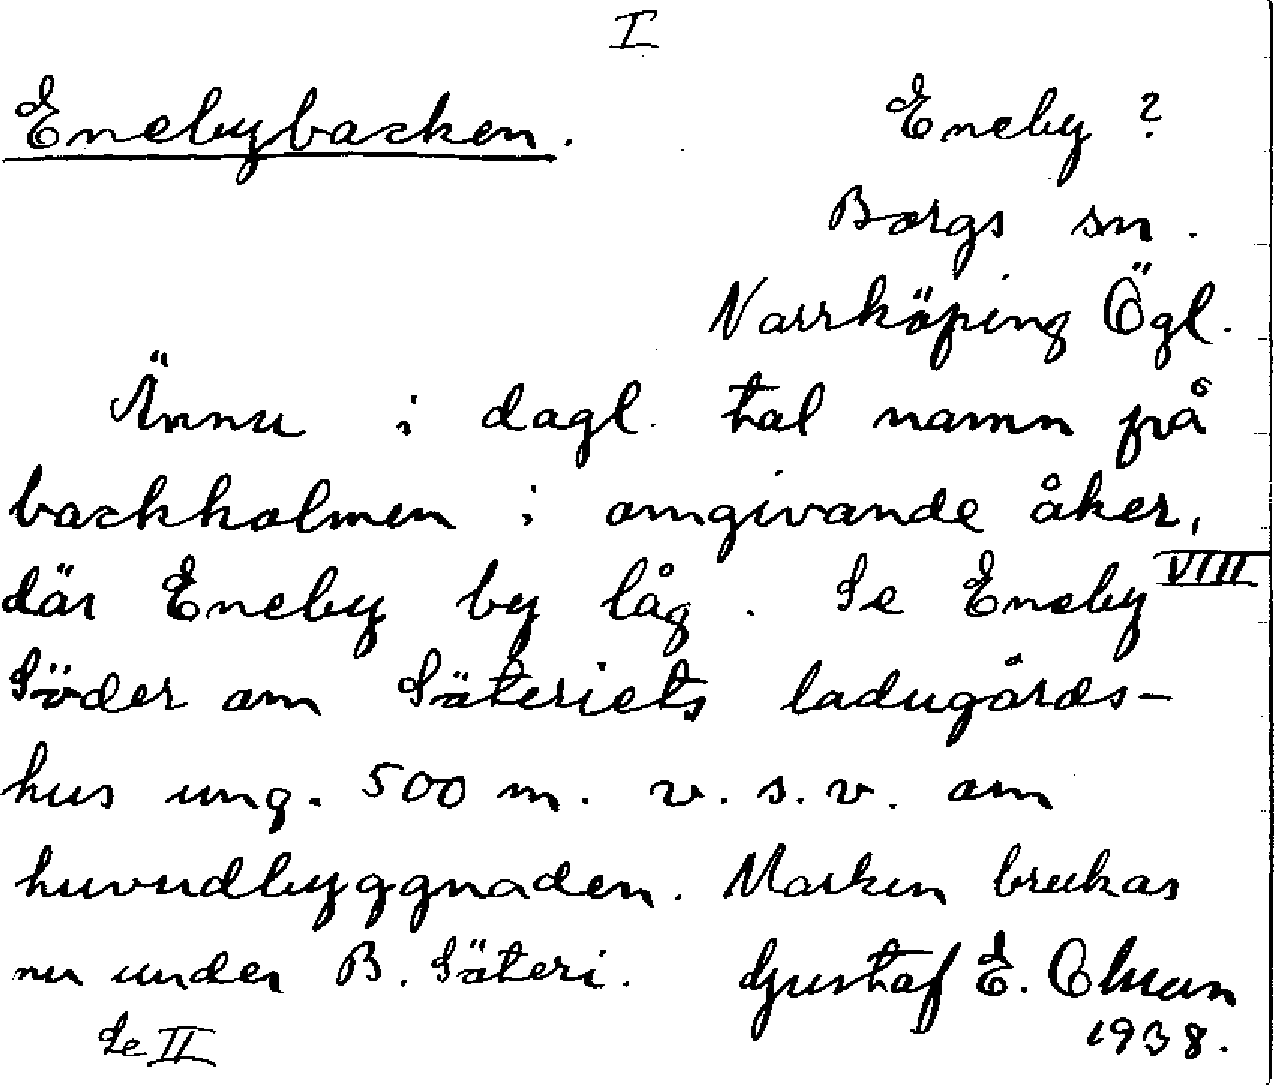 I
Enebybacken. Eneby ?
Borgs sn.
Norrköping Ögl.
Ännu i dagl. tal namn på
backholmen i omgivande åker,
där Eneby by låg. Se Eneby VIII
Söder om Säteriets ladugårds-
hus ung. 500 m. v.s.v. om
huvudbyggnaden. Marken brukas
nu under B. Säteri. Gustaf E. Ohman
Se II 1938.